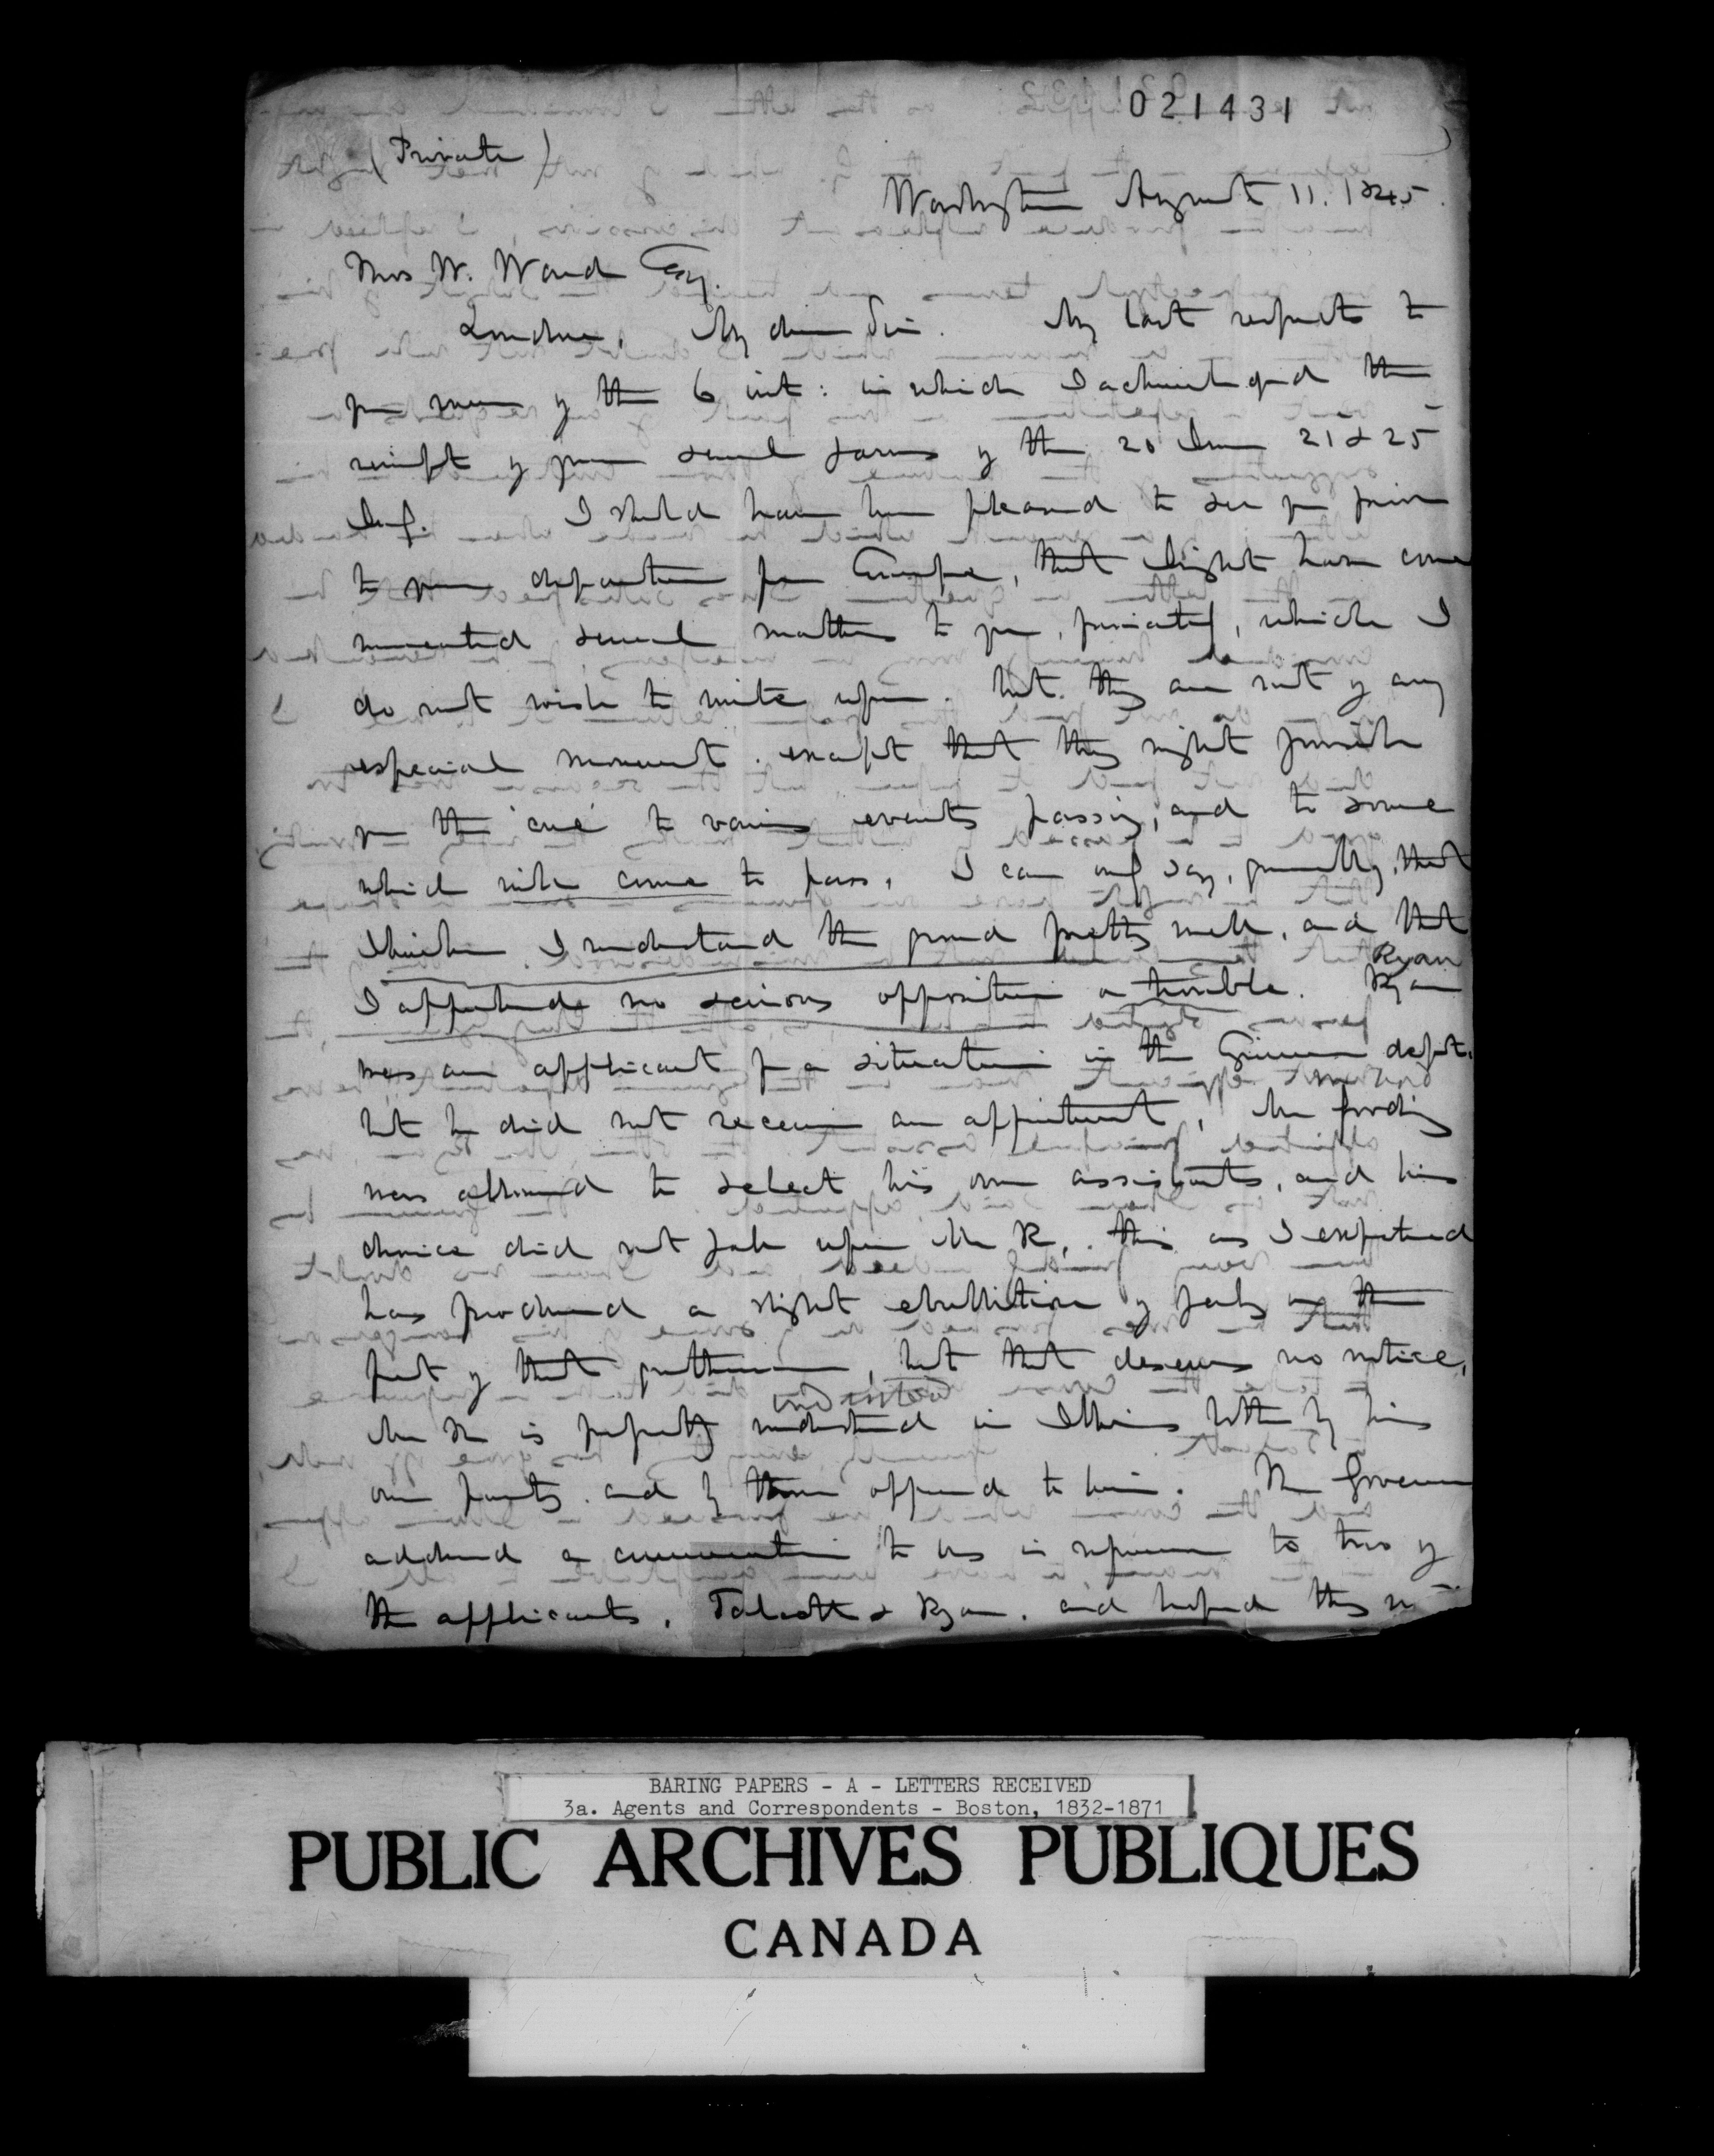 021431
(Private)
Washington August 11. 1845.
Thos W. Ward Esq.
London. My dear Sir. My last respects to
you were of the 6 inst: in which I acknowledged the
receipt of your several favors of the 20 June 21 & 25
July. I should have been pleased to see you prior
to your departure for Europe, that I might have com
municated several matters to you, privately, which I
do not wish to write upon. but they are not of any
especial moment. except that they might furnish
you the 'cue' to various events passing, and to some
which will come to pass. I can only say, generally, that
I think I understand the ground pretty well, and that
I apprehend no serious opposition or trouble. Ryan
Ryan
was an applicant for a situation in the Engineer dept.
but he did not receive an appointment, Mr Gooding
was allowed to select his own assistants, and his
choice did not fall upon Mr R. this as I expected
has produced a slight ebullition of feeling on the
part of that gentleman, but that deserves no notice,
understood
Mr R is perfectly understood in Illinois both by his
own party. and by those opposed to him. The Governor
addressed a communication to us in reference to two of
the applicants, Talcott & Ryan. and hoped they
BARING PAPERS - A - LETTERS RECEIVED
3a. Agents and Correspondents - Boston, 1832-1871
PUBLIC ARCHIVES PUBLIQUES
CANADA